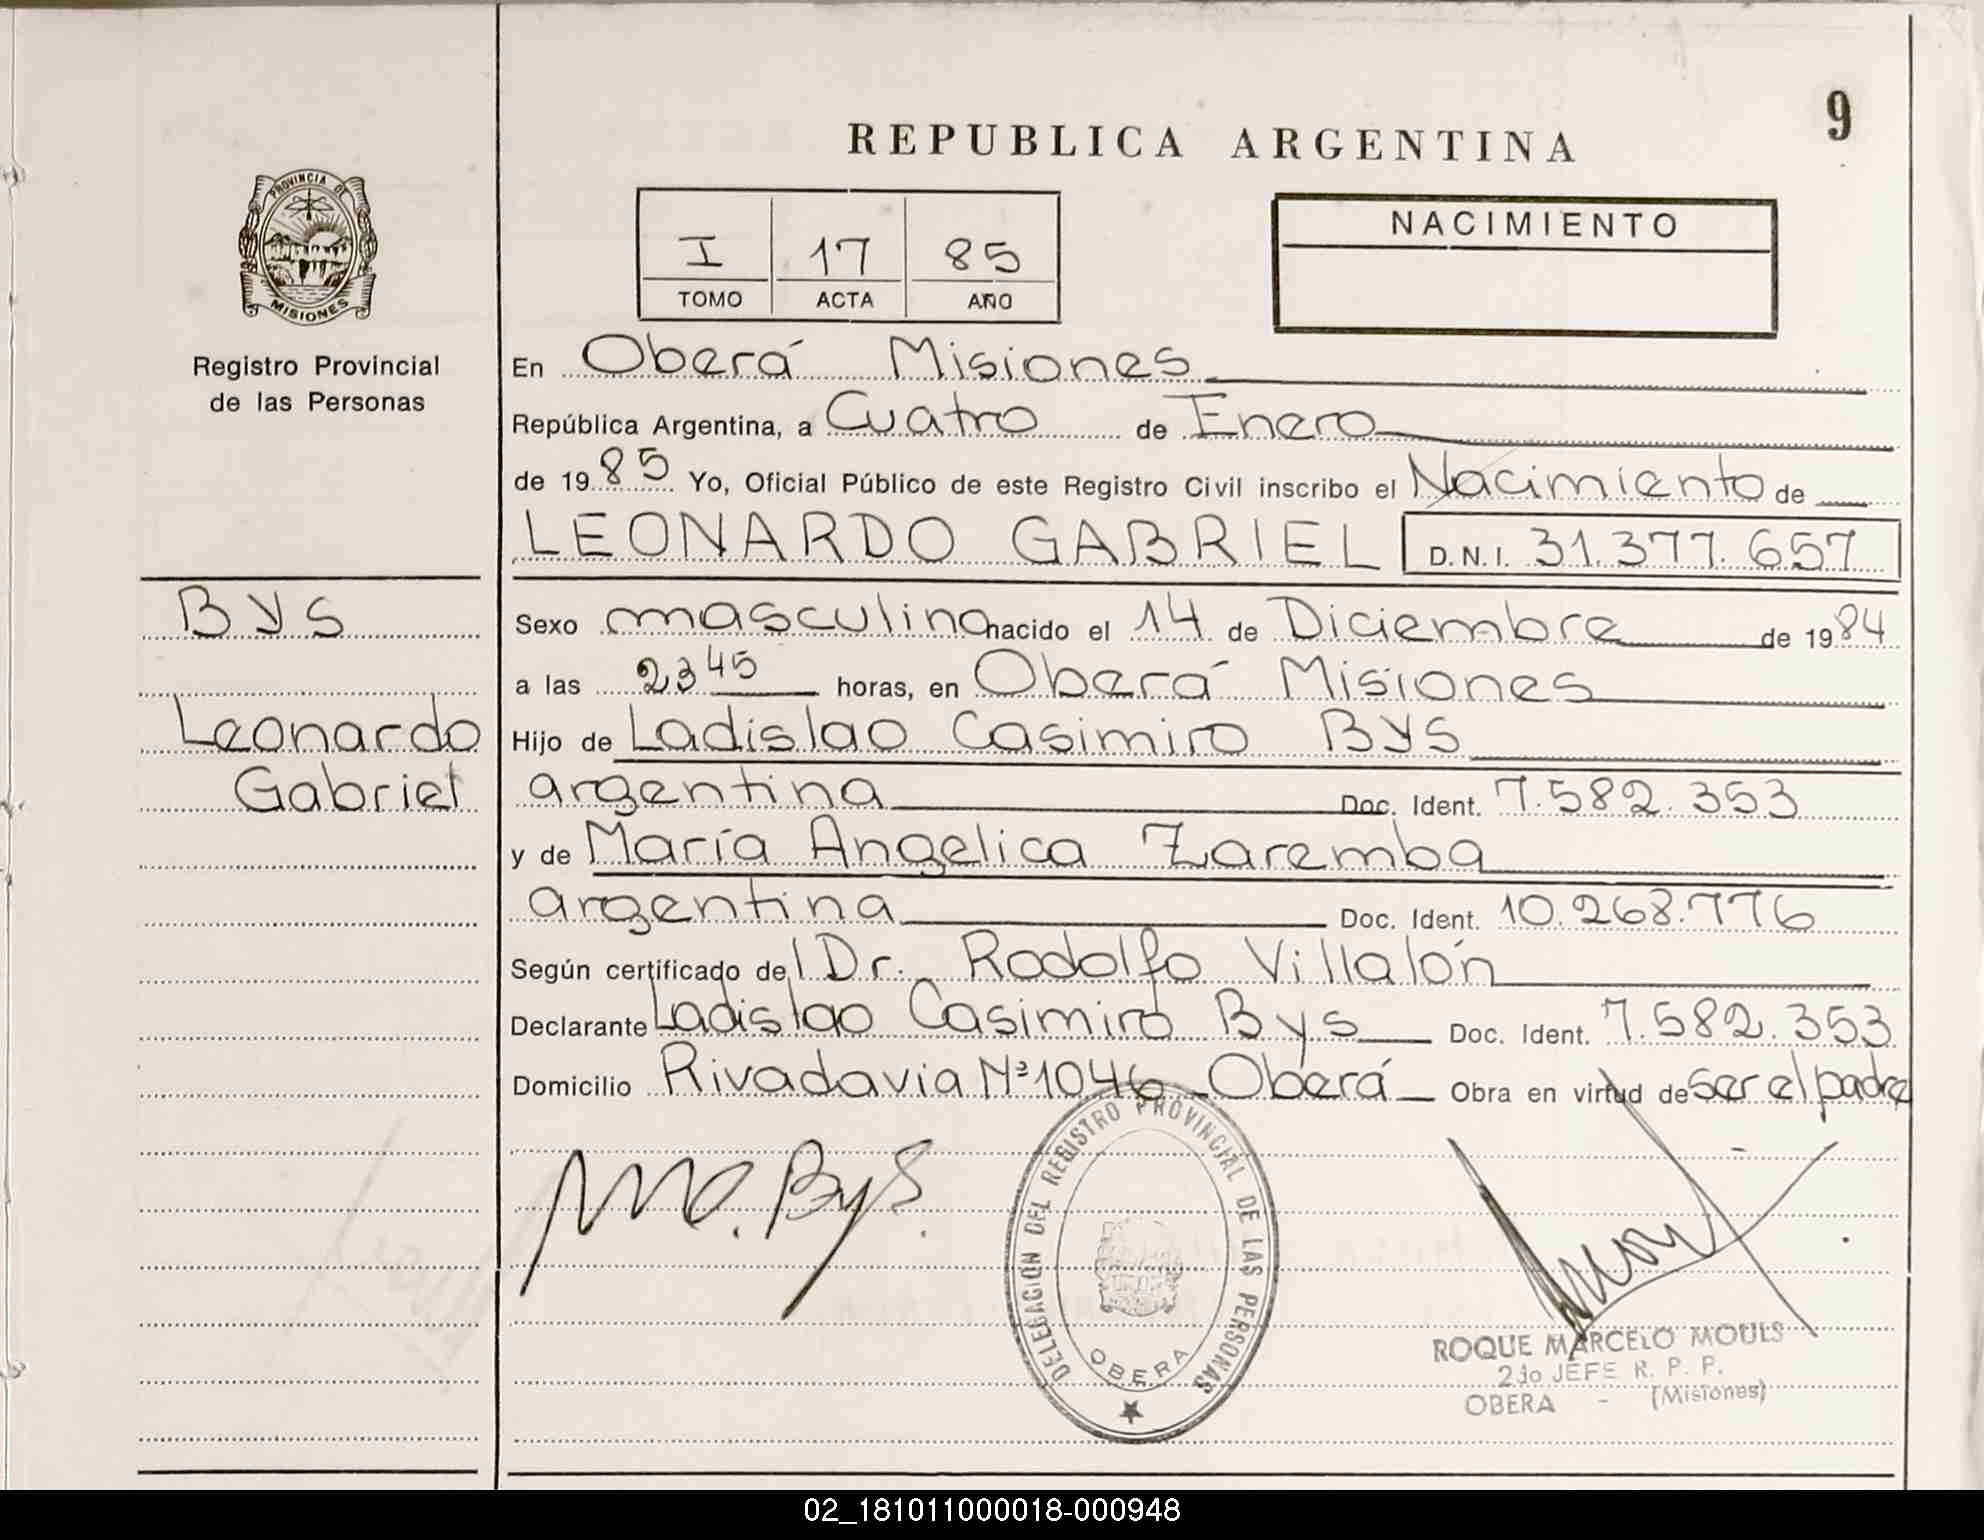 9
REPUBLICA ARGENTINA
PROVINCIA DE
MISIONES
Registro Provincial
de las Personas
I 17 85
TOMO ACTA AÑO
NACIMIENTO
En Oberá Misiones
República Argentina, a Cuatro de Enero
de 1985 Yo, Oficial Público de este Registro Civil inscribo el Nacimiento de
LEONARDO GABRIEL D.N.I. 31.377.657
Bys
Leonardo
Gabriel
Sexo masculino nacido el 14 de Diciembre de 1984
a las 23 45 horas, en Oberá Misiones
Hijo de Ladislao Casimiro Bys
argentina Doc. Ident. 7.582.353
y de María Angelica Zaremba
argentina Doc. Ident. 10.268.776
Según certificado del Dr. Rodolfo Villalón
Declarante Ladislao Casimiro Bys Doc. Ident. 7.582.353
Domicilio Rivadavia Nº 1046 Oberá Obra en virtud de ser el padre
Bys.
DELEGACION DEL REGISTRO PROVINCIAL DE LAS PERSONAS
OBERA
ROQUE MARCELO MOULS
2do JEFE R. P. P.
OBERA - (Misiones)
02_181011000018-000948